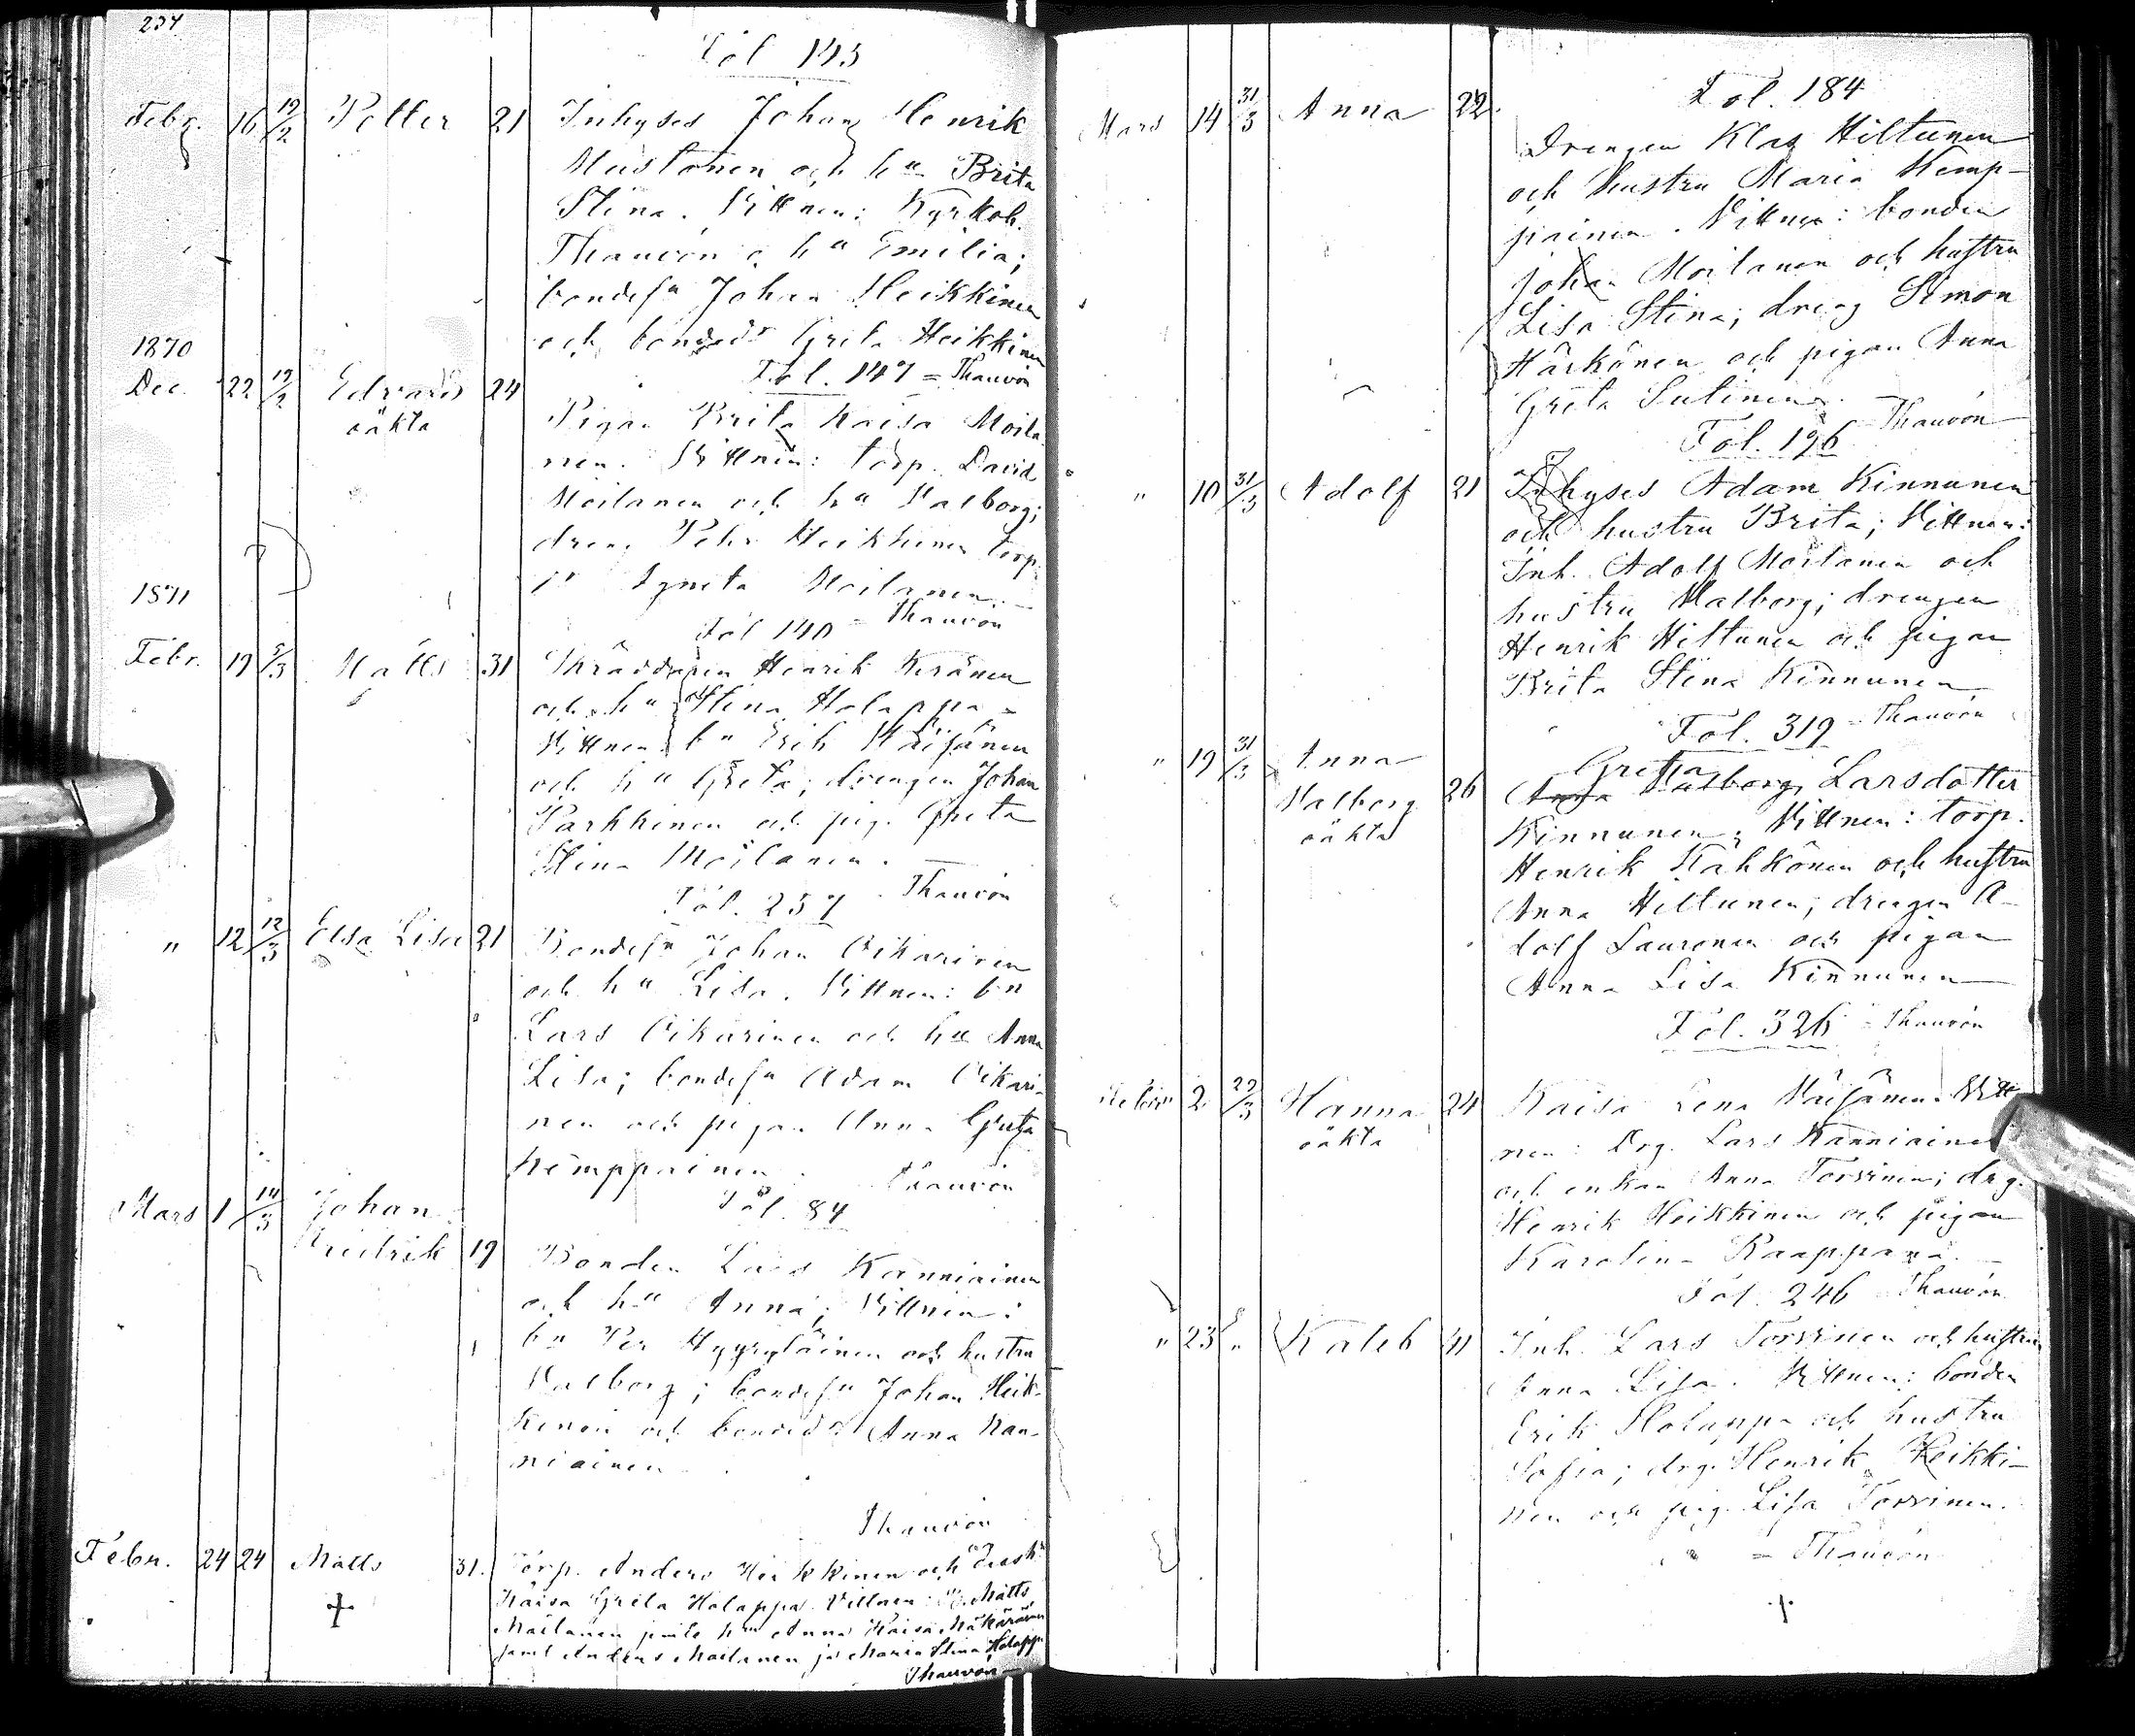 234
Fol 143
Febr. 16 19/2 Petter 21 Inhyses Johan Henrik
Mustonen och hu Brita
Stina. Vittnen: Kyrkoh.
Thauvón o. hu Emilia;
bondesn Johan Heikkinen
och bonded Greta Heikkinen
Fol. 147 = Thauvón
1870
Dec. 22 19/2 Edvard 24
oäkta
Pigan Brita Kaisa Moila
nen. Vittnen: torp. David
Moilanen och hu Valborg;
dren. Pehr Heikkinen torp
Agneta Moilanen.
Fol 140 = Thauvón
1871
Febr. 19 5/3 Matts 31 Skräddaren Henrik Keränen
och hu Stina Holappa -
Vittnen: bn Erik Väisänen
och hu Greta; drengen Johan
Parkkinen och pig. Greta
Stina Moilanen.
Fol. 237 - Thauvón
" 12 12/3 Elsa Lisa 21 Bondesn Johan Oikarinen
och hu Lisa. Vittnen: bn
Lars Oikarinen och hu Anna
Lisa; bondesn Adam Oikari-
nen och pigan Anna Greta
Kemppainen. Thauvón
Fol. 84
Mars 1 14/3 Johan
Fredrik 19 Bonden Lars Kanniainen
och hu Anna; Vittnen:
bn Per Hyyryläinen och hustru
Valborg; bondesn Johan Heik-
kinen och bonded Anna Kan-
niainen
Thauvón
Febr. 24 24 Matts 31. Torp. Anders Heikkinen och
Kaisa Greta Holappa. Vittnen: Matts
Moilanen jemte hu Anna Kaisa Mäkäräinen
samt Anders Moilanen jo Maria Stina Holappa
Thauvón
Fol. 184
Mars 14 31/3 Anna 22. Drengen Klas Hiltunen
och hustru Maria Kemp-
painen. Vittnen: bonden
Johan Moilanen och hustru
Lisa Stina; dreng Simon
Härkönen och pigan Anna
Greta Sutinen.
Fol. 196 Thauvón
" 10 31/3 Adolf 21 Inhyses Adam Kinnunen
och hustru Brita; Vittnen:
Inh. Adolf Moilanen och
hustru Valborg; drengen
Henrik Hiltunen och pigan
Brita Stina Kinnunen
Fol. 319 = Thauvón
" 19 31/3 Anna
Valborg 26
oäkta
Greta
Anna Valborg Larsdotter
Kinnunen; Vittnen: torp.
Henrik Kähkönen och hustru
Anna Hiltunen; drengen A-
dolf Lauronen och pigan
Anna Lisa Kinnunen
Fol. 326 = Thauvón
2 29/3 Hanna 24
oäkta
Kaisa Lena Väisänen. Vitt
nen: Drg. Lars Kanniainen
och enkan Anna Torvinen; drg.
Henrik Heikkinen och pigan
Karolina Kaappana.
Fol. 246 Thauvón
" 23 " Kaleb 41 Inh. Lars Torvinen och hustru
Anna Lisa. Vittnen: bonden
Erik Holappa och hustru
Sofia; drg. Henrik Heikki-
nen och pig. Lisa Torvinen.
= Thauvón